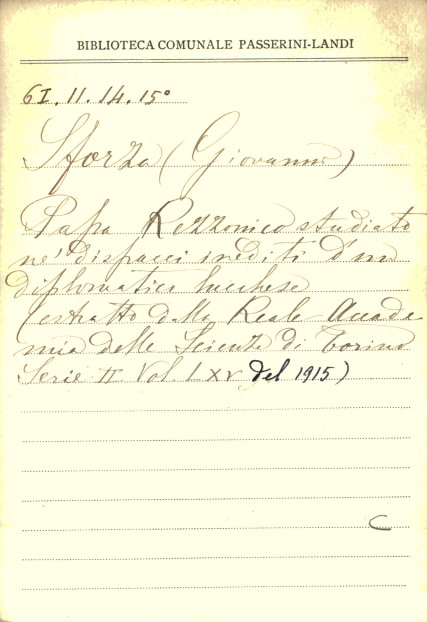 BIBLIOTECA COMUNALE PASSERINI-LANDI
6I. 11. 14. 15°
Sforza (Giovanni)
Papa Rezzonico studiato
ne' dispacci inediti d'un
diplomatico lucchese
(estratto dalla Reale Accade
mia delle Scienze di Torino
Serie II. Vol. LXV del 1915)
C